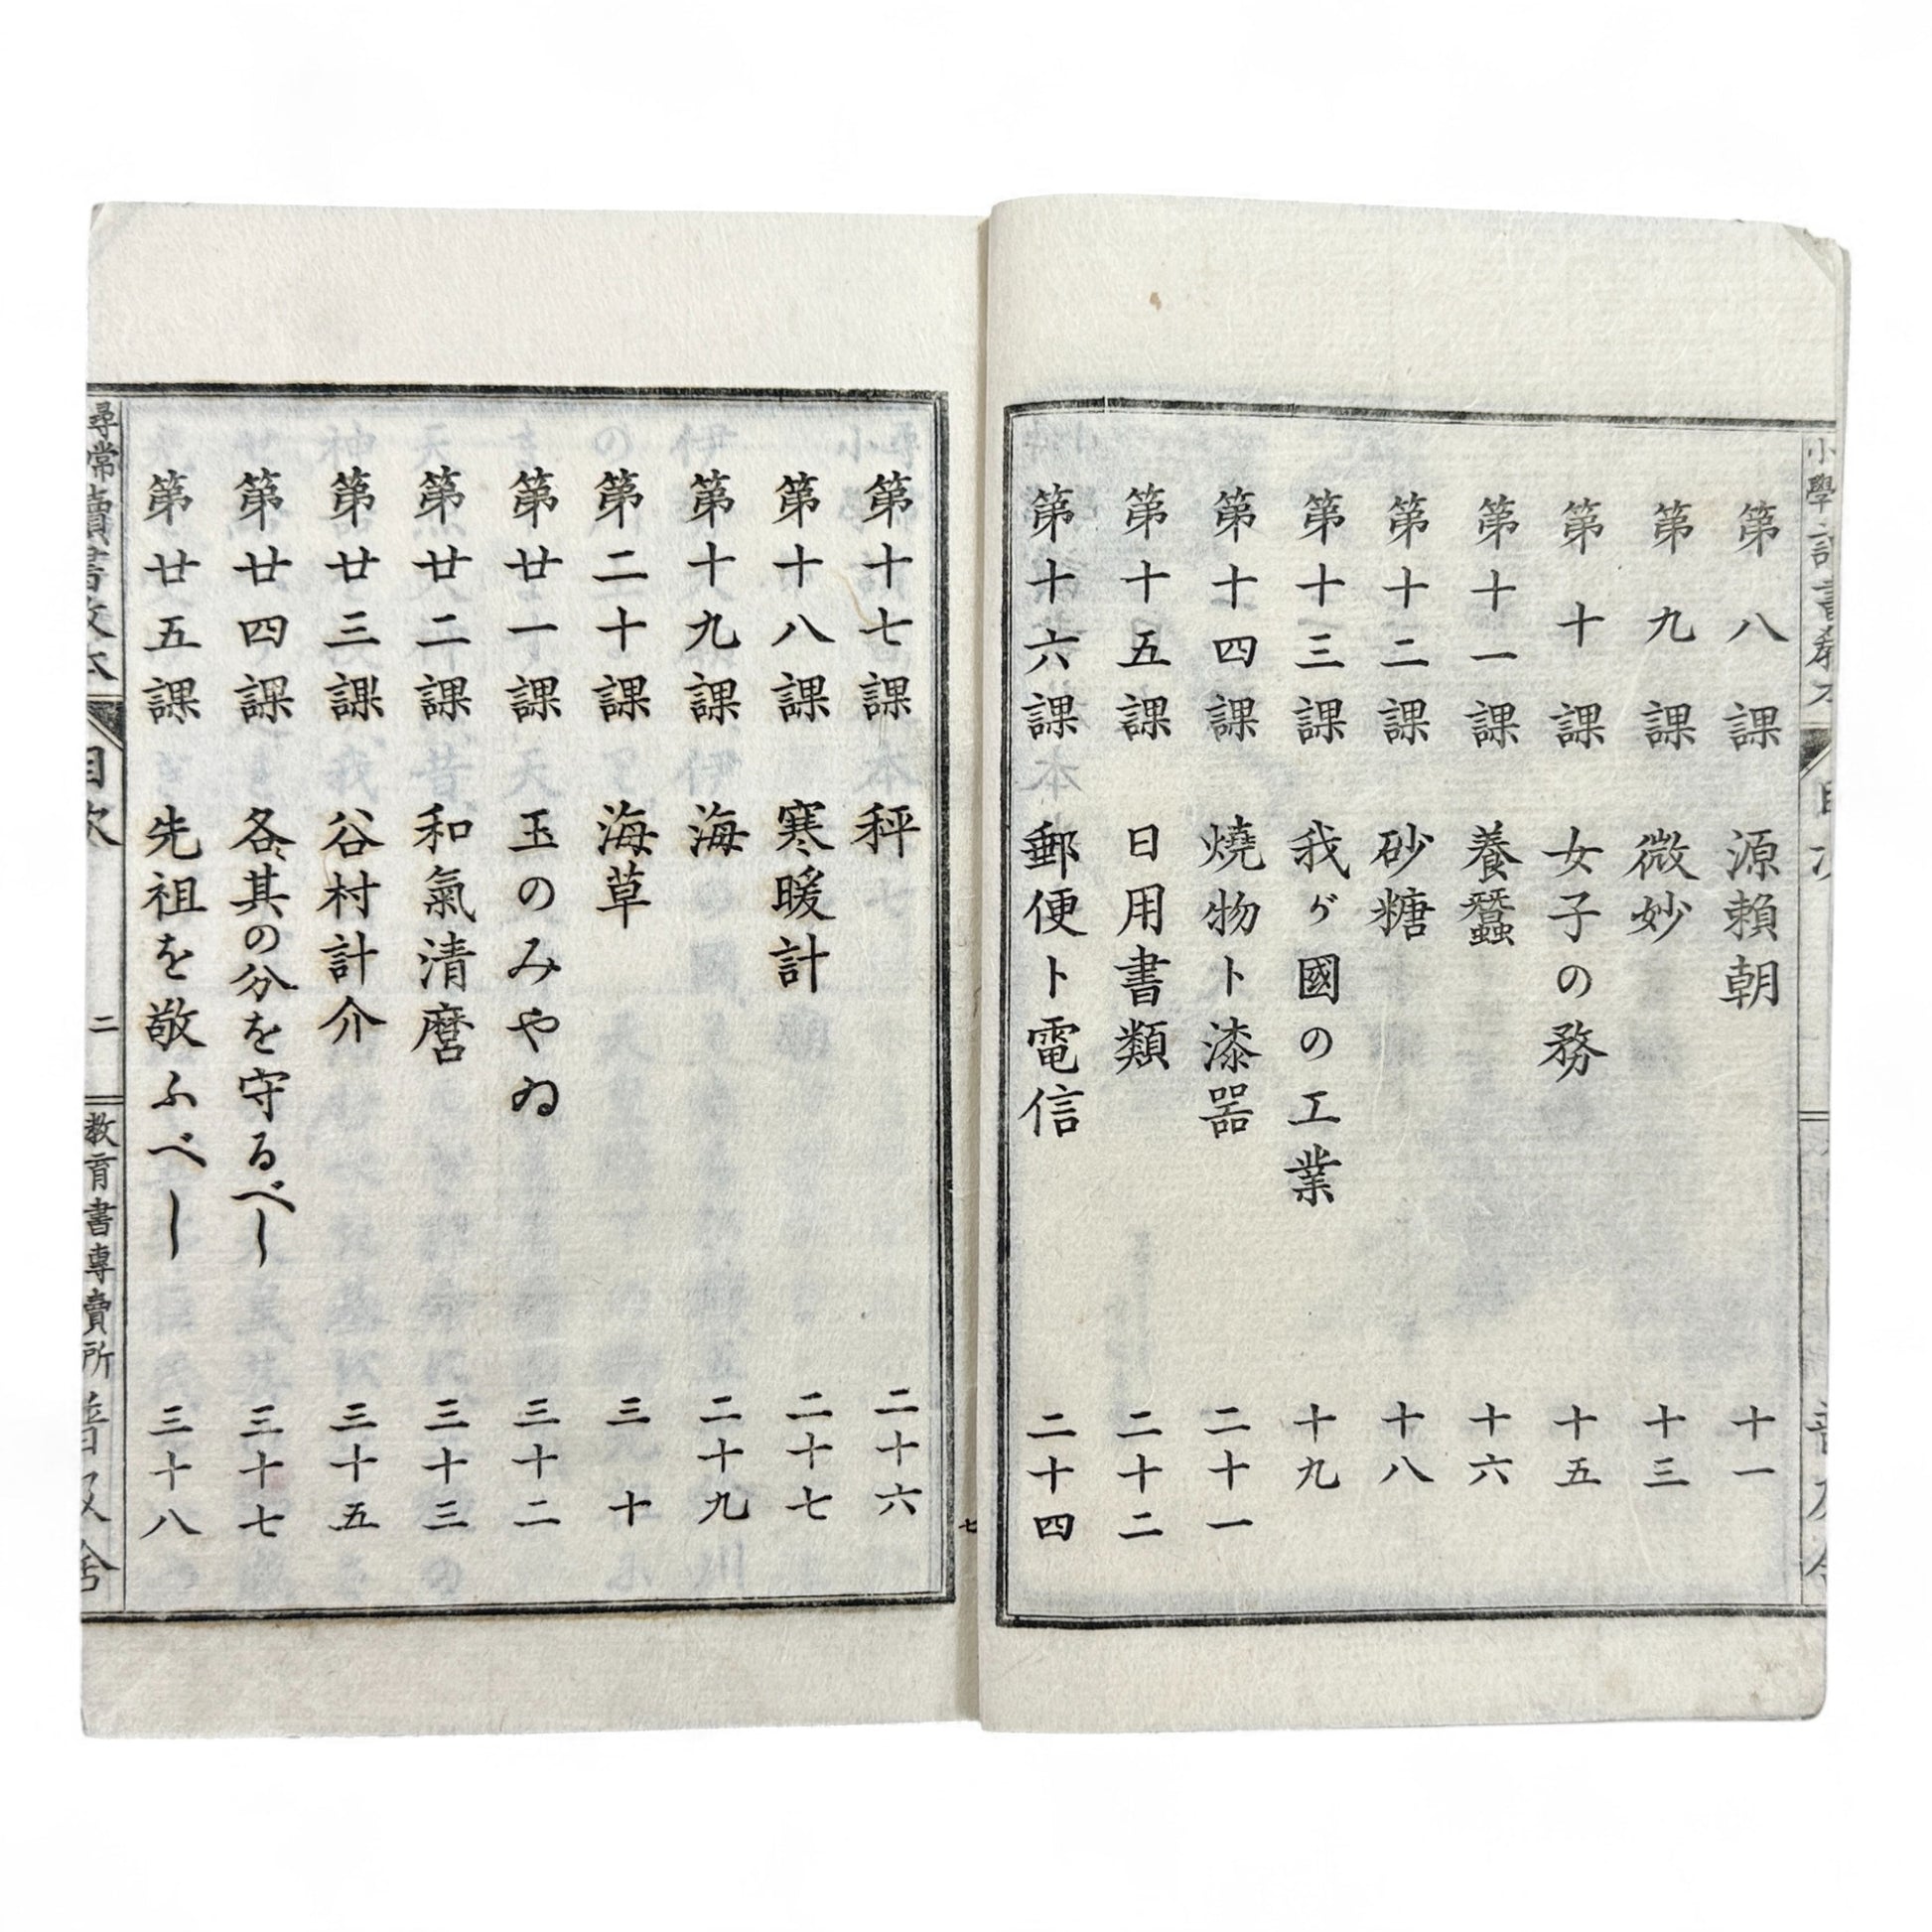 第八課 源賴朝 十一
第九課 微妙 十三
第十課 女子の務 十五
第十一課 養蠶 十六
第十二課 砂糖 十八
第十三課 我ガ國の工業 十九
第十四課 燒物ト漆器 二十一
第十五課 日用書類 二十二
第十六課 郵便ト電信 二十四
七
第十七課 秤 二十六
第十八課 寒暖計 二十七
第十九課 海 二十九
第二十課 海草 三十
第廿一課 玉のみやゐ 三十二
第廿二課 和氣清麿 三十三
第廿三課 谷村計介 三十五
第廿四課 各〻其の分を守るべし 三十七
第廿五課 先祖を敬ふべし 三十八
尋常 讀書敎本 目次 二 教育書專賣所 普及舍